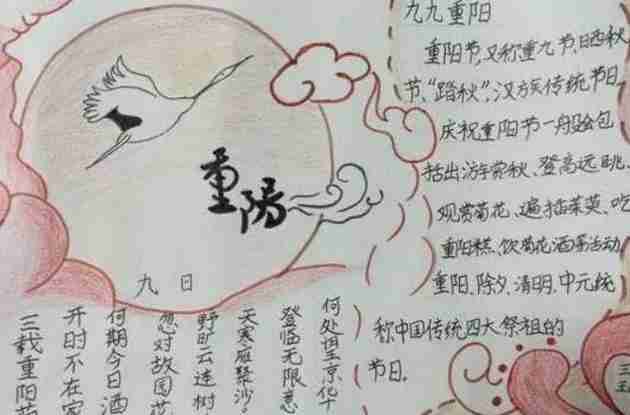 重陽
九日
何处望京华
登临无限意
天寒雁聚沙。
野旷云连树
忽对故园花
何期今日酒
开时不在家
三载重阳
九九重阳
重阳节,又称重九节、晒秋
节、“踏秋”,汉族传统节日
庆祝重阳节一般会包
括出游赏秋、登高远眺、
观赏菊花、遍插茱萸、吃
重阳糕、饮菊花酒等活动
重阳、除夕、清明、中元统
称中国传统四大祭祖的
节日.
三
五